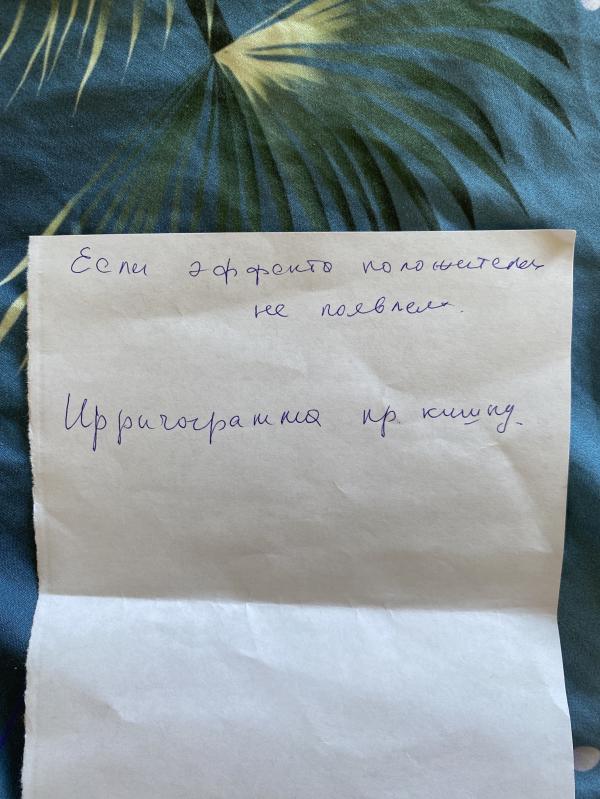 Если эффекта положительн
не появлен.
Ирригограмма пр. кишид.